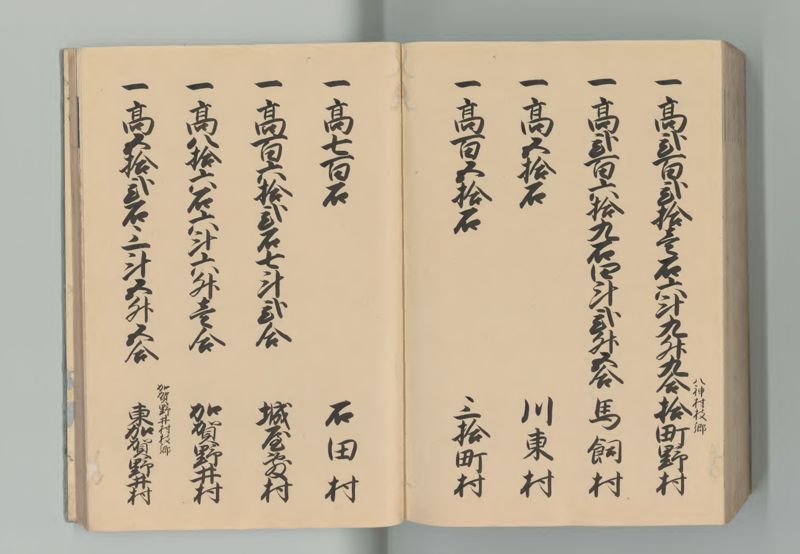 一高弐百弐拾壱石六斗九升九合 八神村枝郷 拾町野村
一高弐百六拾九石四斗弐升五合 馬飼村
一高五拾石 川東村
一高百五拾石 三拾町村
一高七百石 石田村
一高百六拾弐石七斗弐合 城屋敷村
一高八拾六石六斗六升壱合 加賀野井村
一高五拾弐石三斗五升五合 加賀野井村枝郷 東加賀野井村